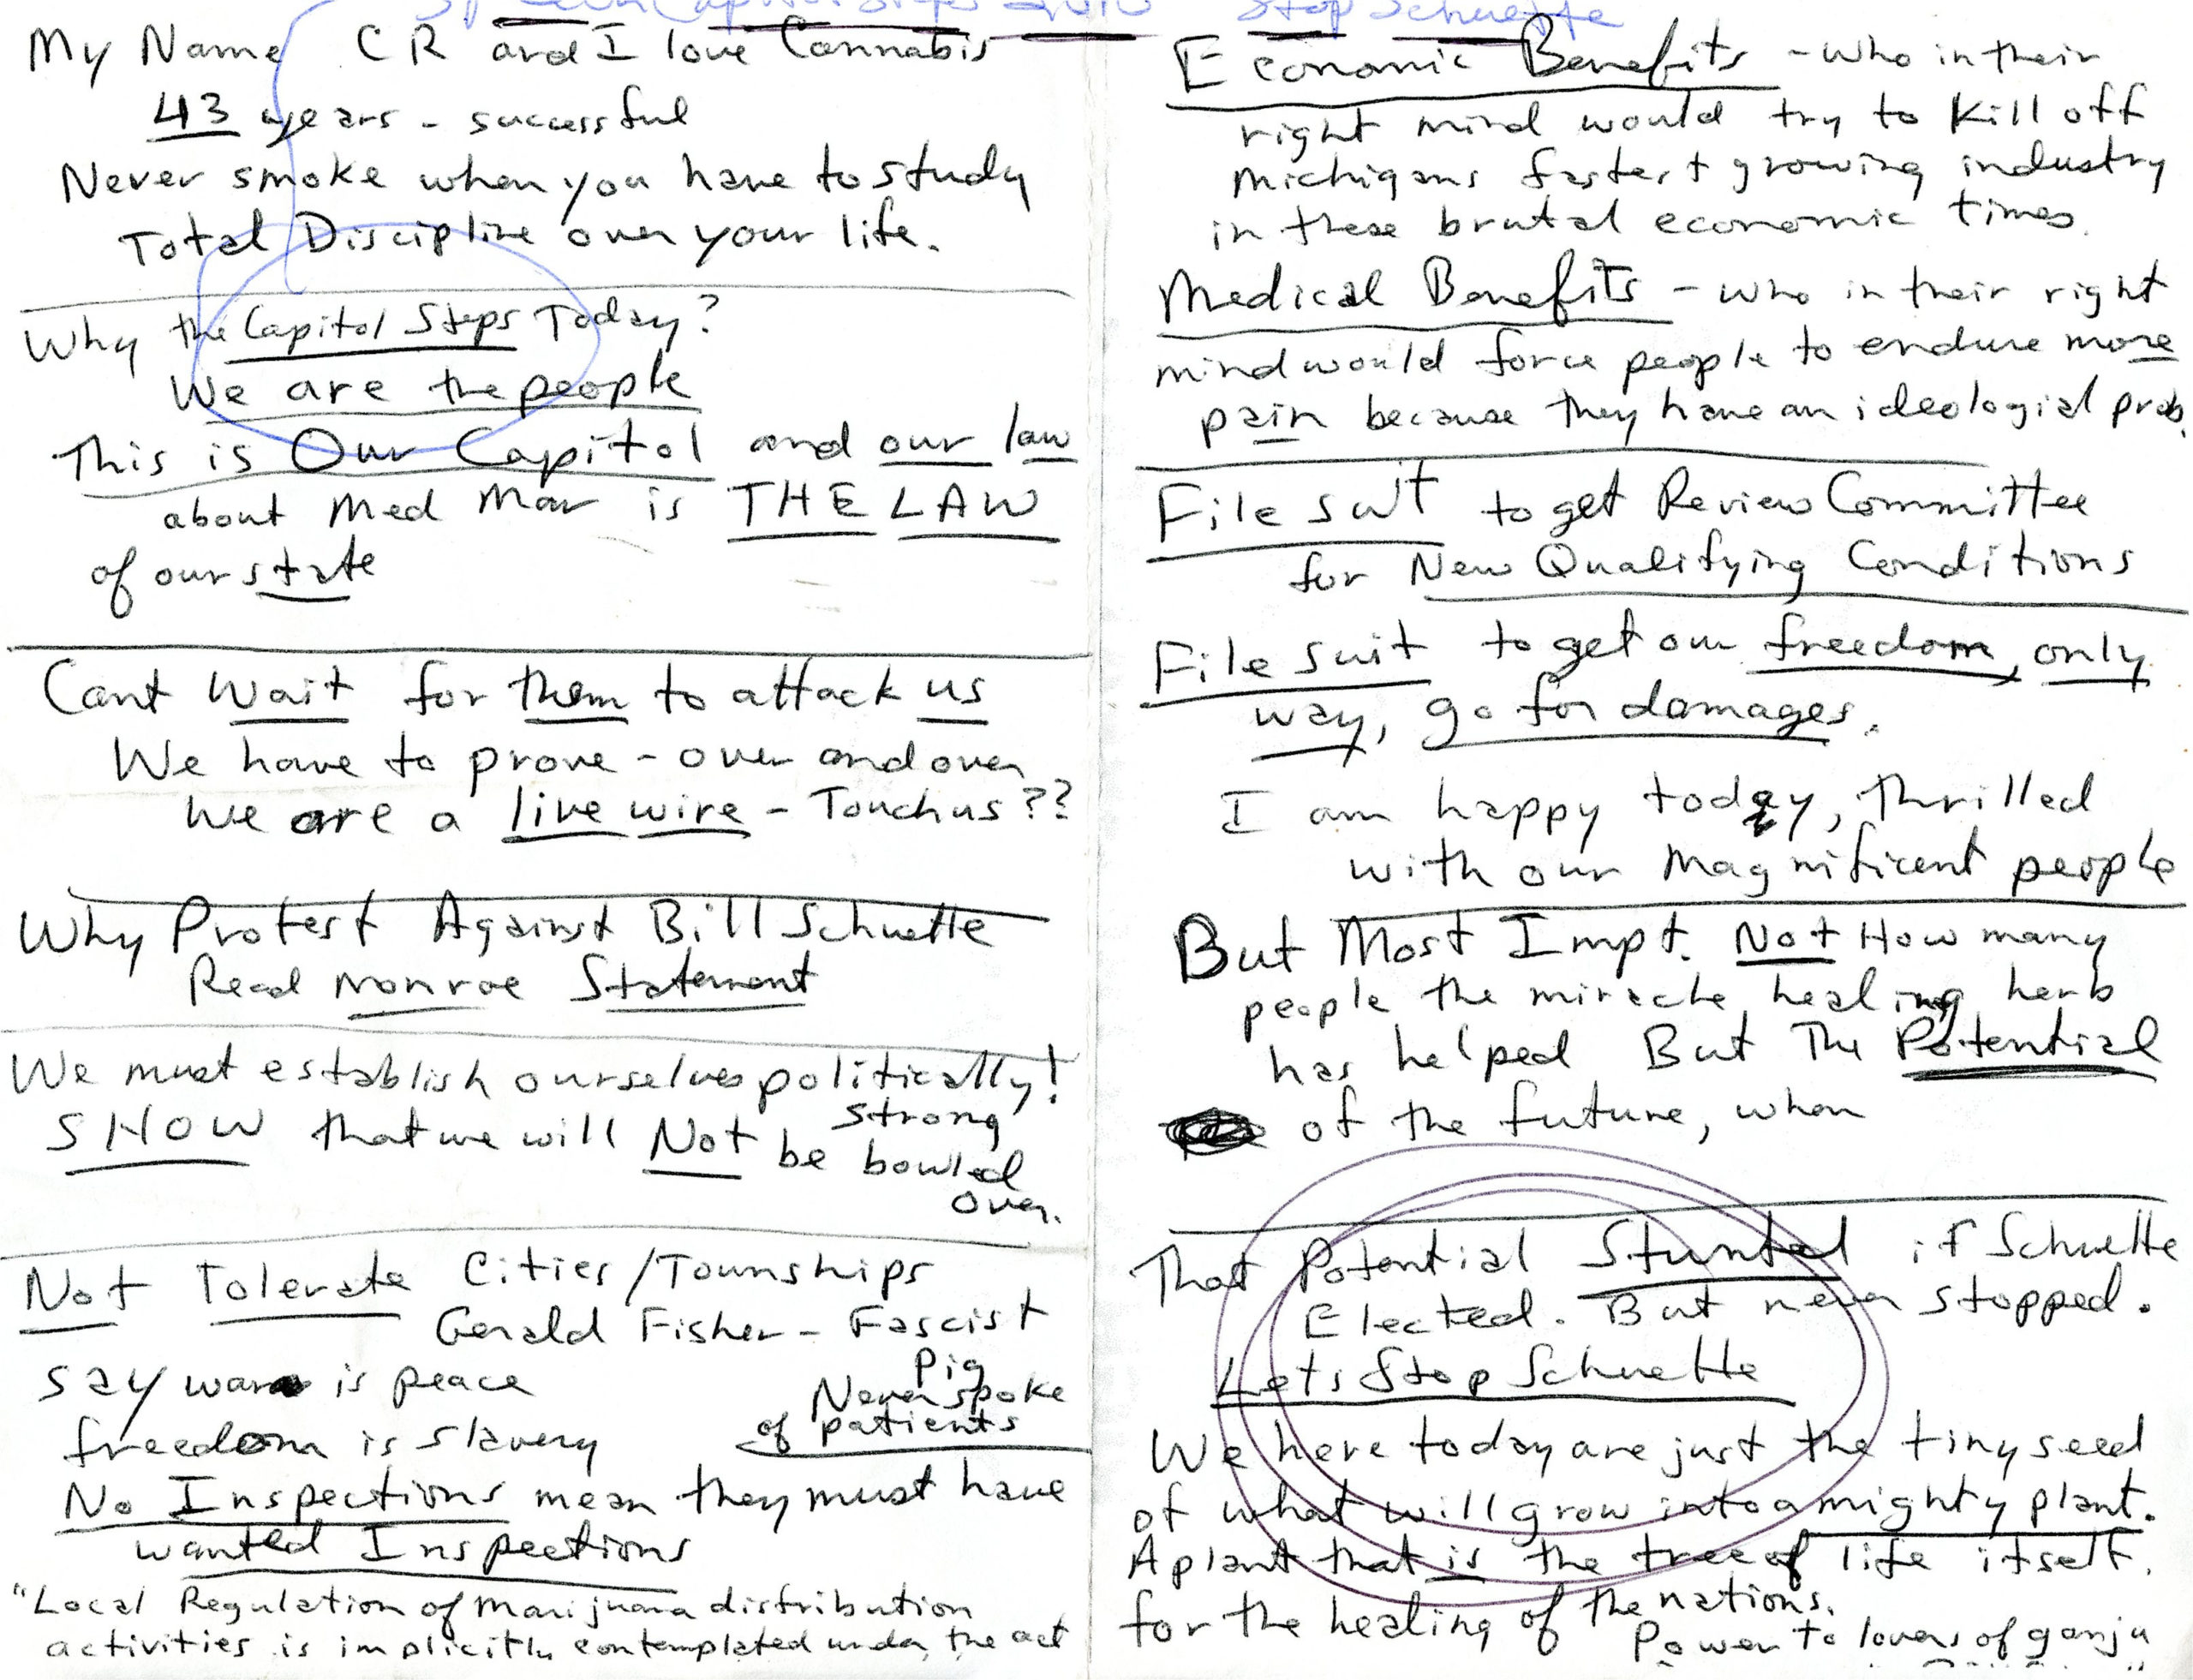 Capitol Steps 2010 Stop Schuette
My Name CR and I love Cannabis
43 years - successful
Never smoke when you have to study
Total Discipline over your life.
Why the Capitol Steps Today?
We are the people
This is Our Capitol and our law
about Med Mar is THE LAW
of our state
Cant Wait for them to attack us
We have to prove - over and over
We are a live wire - Touch us??
Why Protest Against Bill Schuette
Read Monroe Statement
We must establish ourselves politically!
strong
SHOW that we will Not be bowled
over.
Not Tolerate Cities/Townships
Gerald Fisher - Fascist
Pig
say war is peace
Never spoke
of patients
freedom is slavery
No Inspections mean they must have
wanted Inspections
"Local Regulation of marijuana distribution
activities is implicitly contemplated under the act
Economic Benefits - who in their
right mind would try to kill off
Michigans fastest growing industry
in these brutal economic times.
Medical Benefits - who in their right
mind would force people to endure more
pain because they have an ideologial prob.
File suit to get Review Committee
for New Qualifying Conditions
File suit to get our freedom, only
way, go for damages.
I am happy today, thrilled
with our magnificent people
But Most Impt. Not How many
people the miracle healing herb
has helped But The Potential
of the future, when
That Potential Stunted if Schuette
Elected. But never stopped.
Lets Stop Schuette
We here today are just the tiny seed
of what will grow into a mighty plant.
A plant that is the tree of life itself.
for the healing of the nations.
Power to lovers of ganja